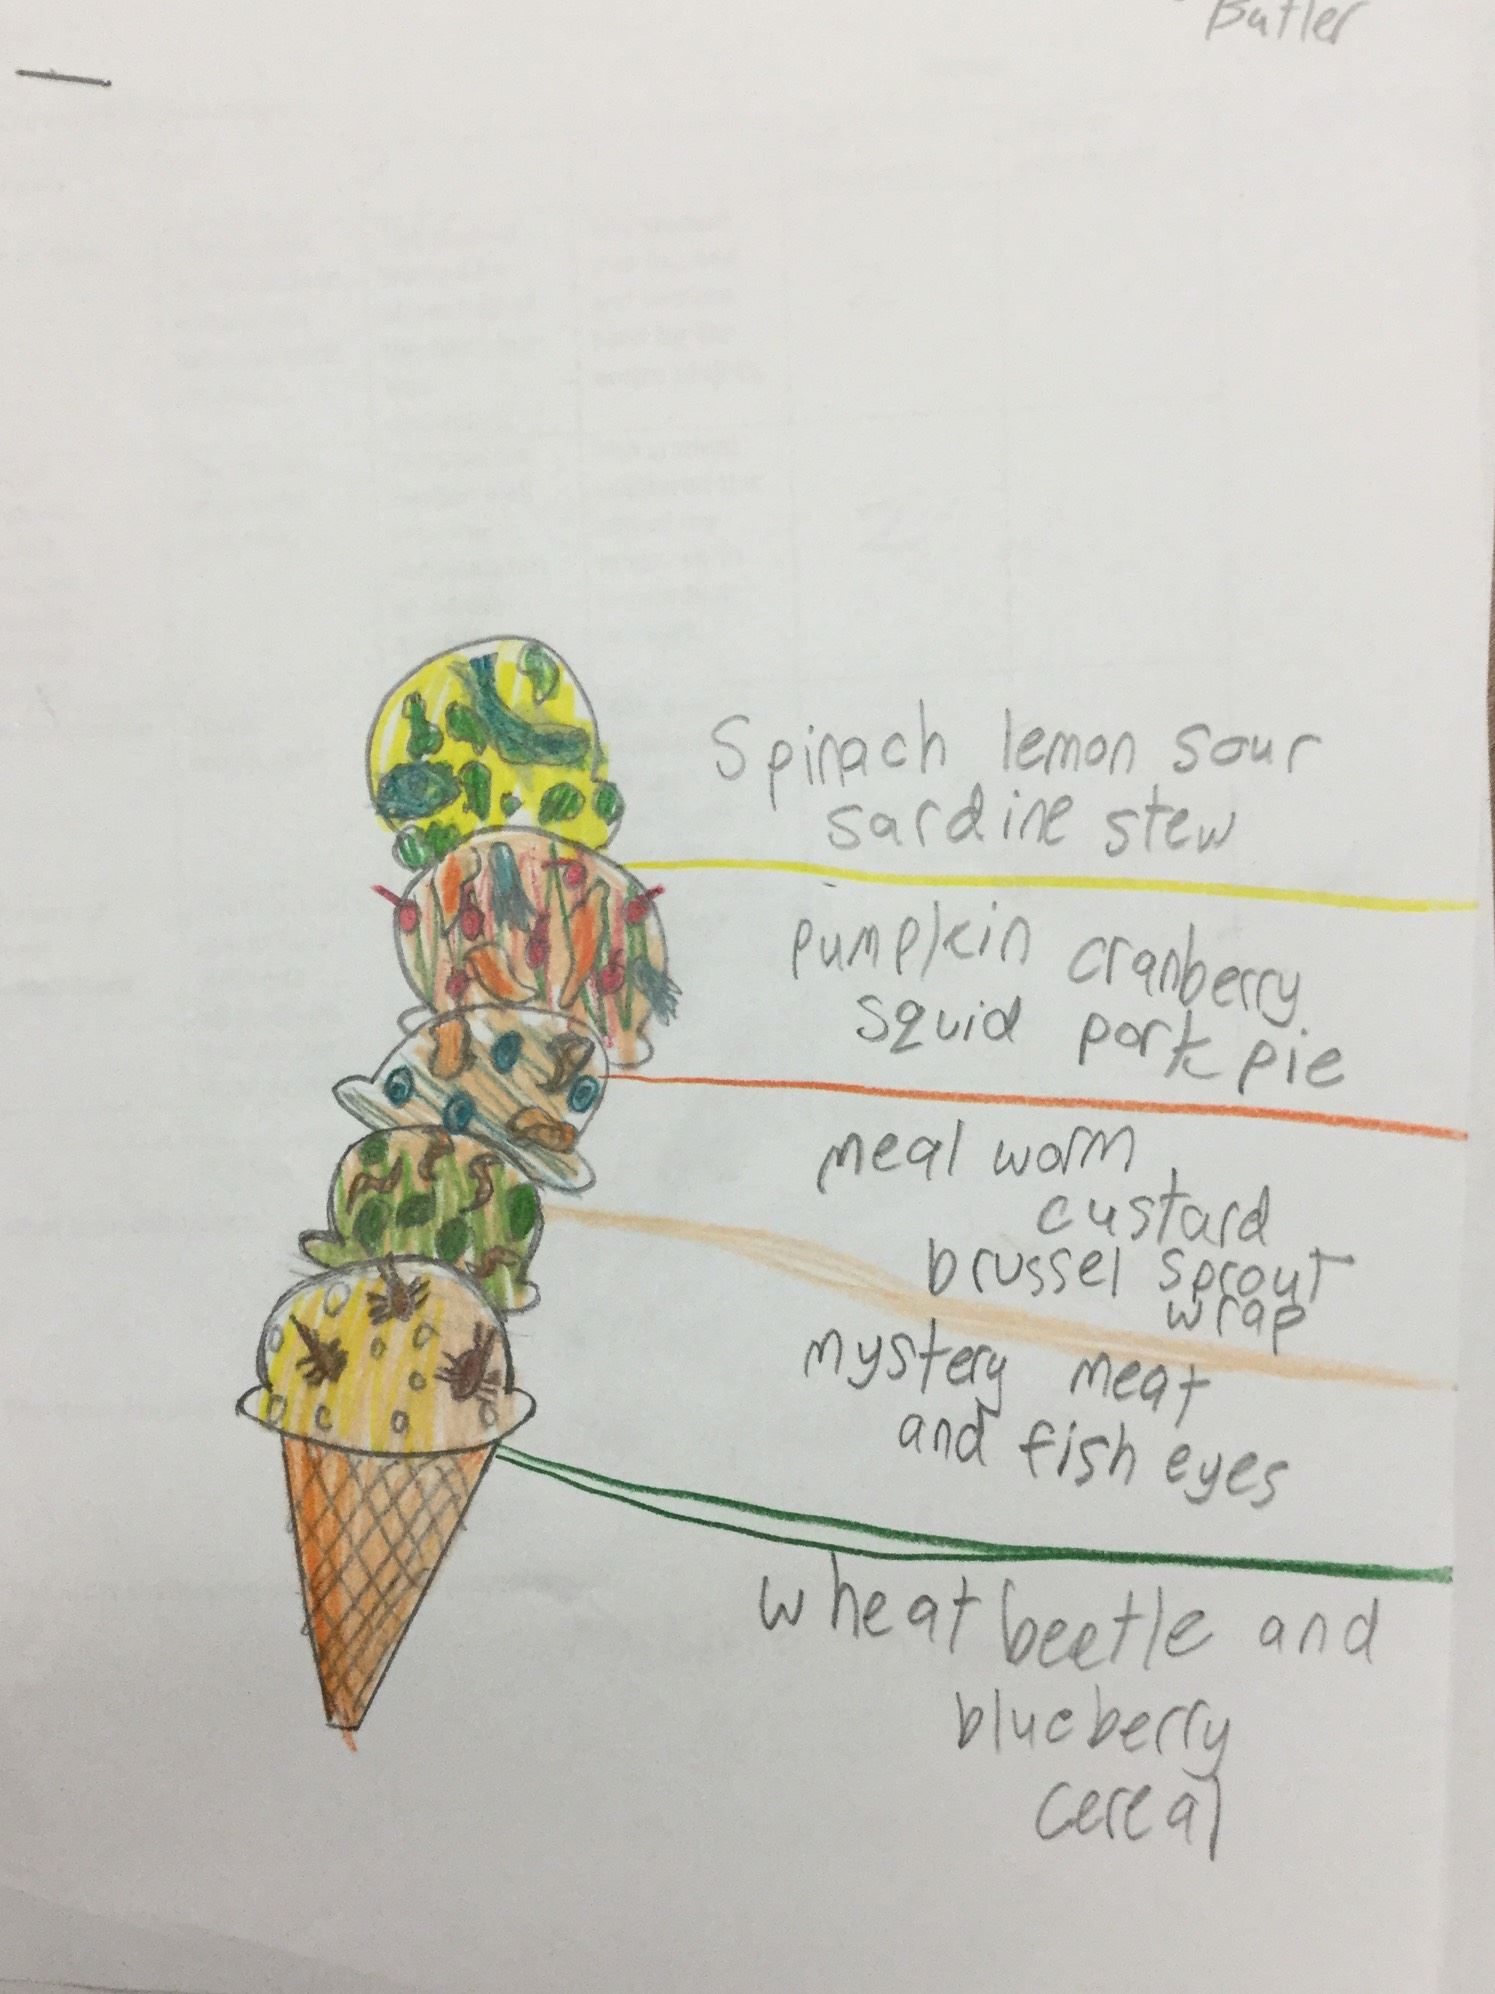 Butler
Spinach lemon sour
sardine stew
pumpkin cranberry
squid pork pie
meal worm
custard
brussel sprout
wrap
mystery meat
and fish eyes
wheat beetle and
blueberry
cereal